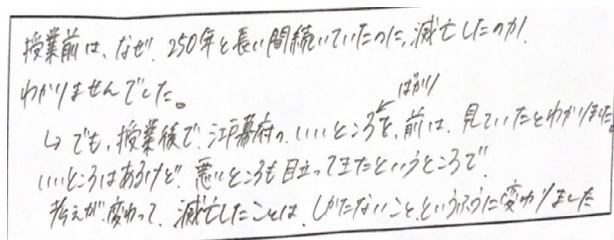 授業前は、なぜ、250年と長い間続いていたのに、滅亡したのか
わかりませんでした。
ばかり
↳でも、授業後で、江戸幕府の、いいところを、前は、見ていたとわかりました
いいところはあるけど、悪いところも目立ってきたというところで、
考えが、変わって、滅亡したことは、しかたないこと、というふうに変わりました